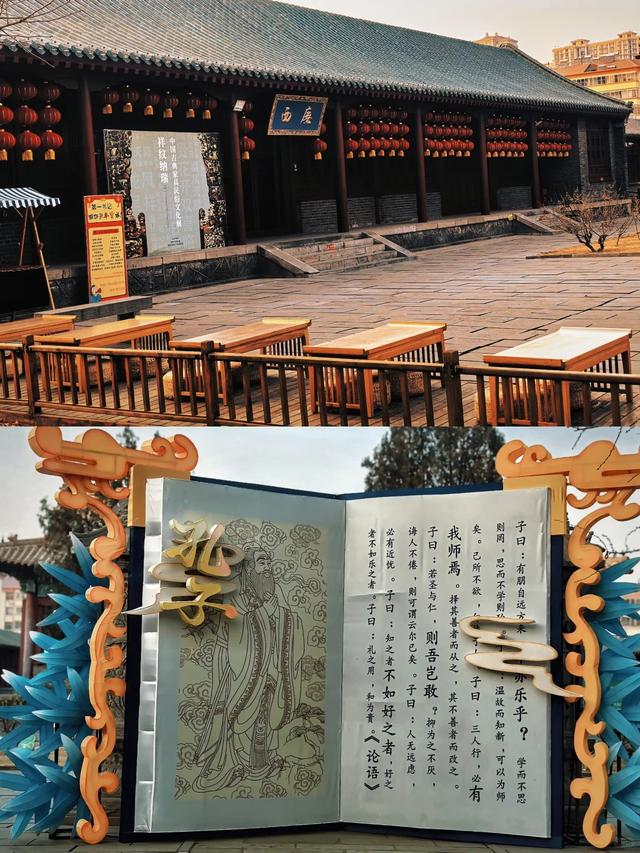 西廡
中国古典家具民俗文化展
祥纹纳瑞
第一书记
孔子
子曰：有朋自远方来 亦乐乎？ 学而不思
则罔，思而不学则 ：温故而知新，可以为师
矣。己所不欲， 子曰：三人行，必有
我师焉。择其善者而从之，其不善者而改之。
子曰：若圣与仁，则吾岂敢？抑为之不厌，
诲人不倦，则可谓云尔已矣。子曰：人无远虑，
必有近忧。子曰：知之者不如好之者，好之
者不如乐之者。子曰：礼之用，和为贵。《论语》